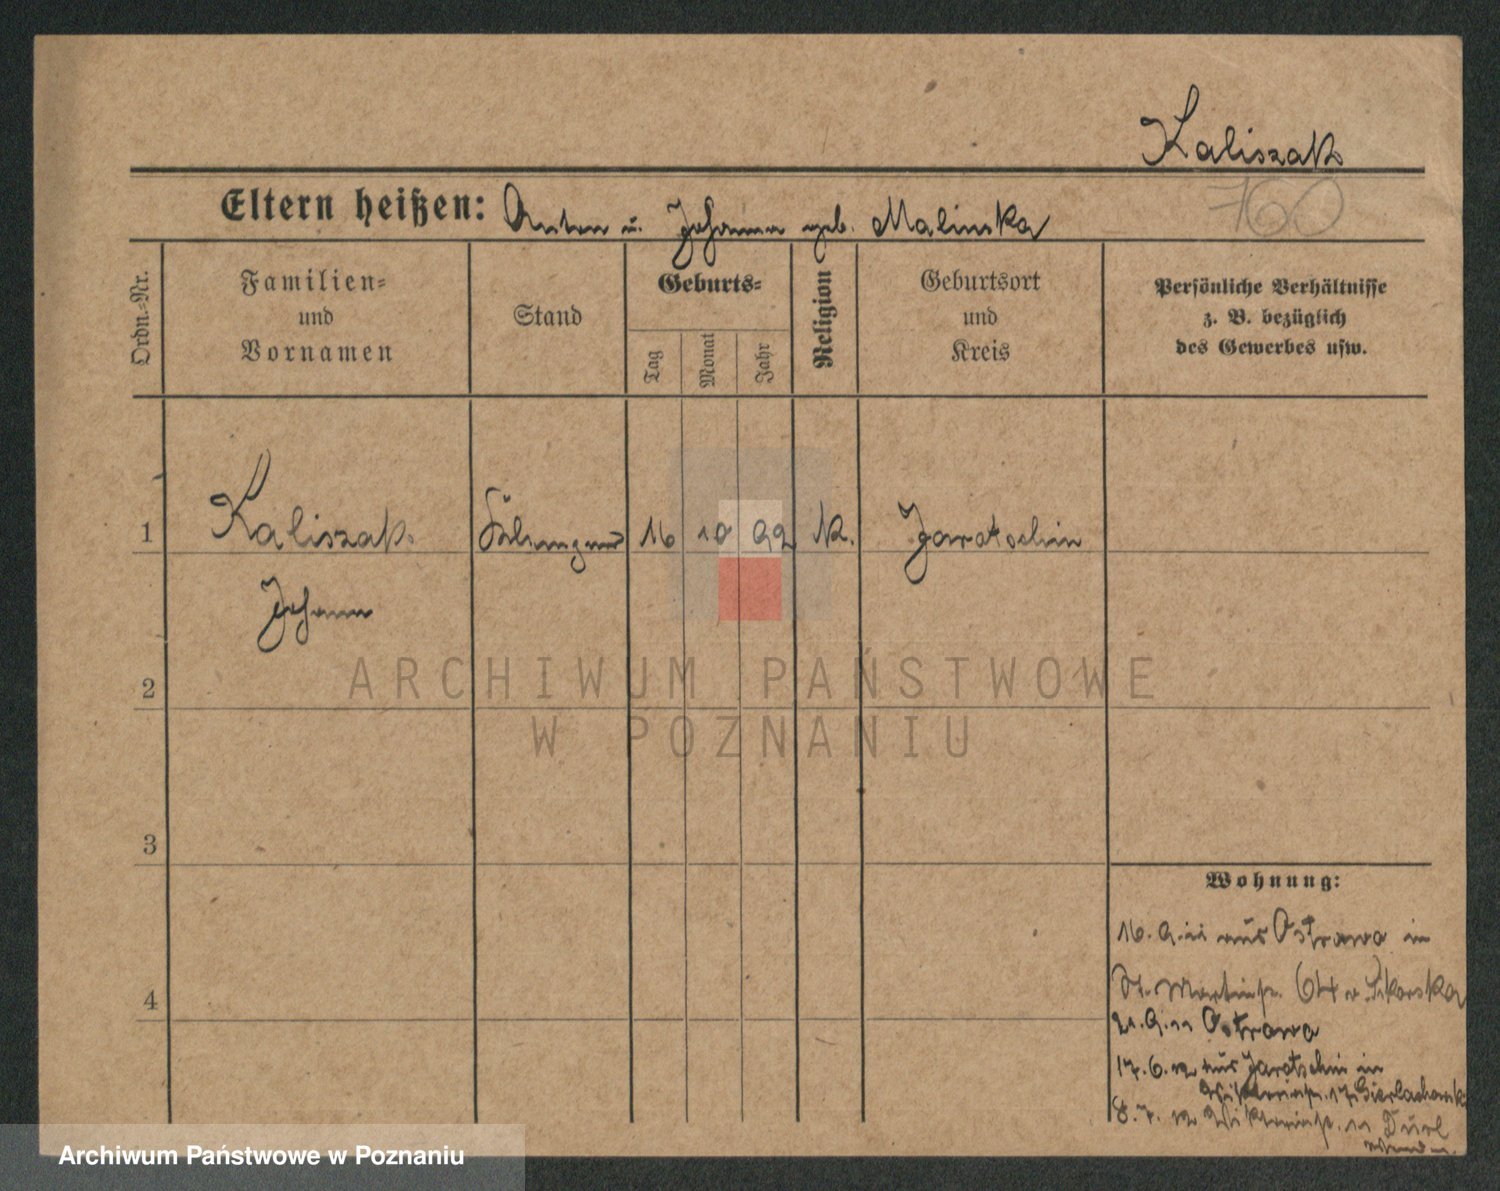 Kaliszak
760
Eltern heißen: Anton u. Johanna geb. Malinska
Ordn.-Nr.
Familien-
und
Vornamen
Stand
Geburts-
Tag
Monat
Jahr
Religion
Geburtsort
und
Kreis
Persönliche Verhältnisse
z. B. bezüglich
des Gewerbes usw.
1 Kaliszak 16 10 92 K. Jarotschin
Johann
2
3
4
Wohnung:
16.9.11 aus Ostrowo in
St. Martinstr. 64 v. Sikorska
21.9.11 Ostrowo
17.6.12 aus Jarotschin in
8.7.12 11
ARCHIWUM PAŃSTWOWE
W POZNANIU
Archiwum Państwowe w Poznaniu